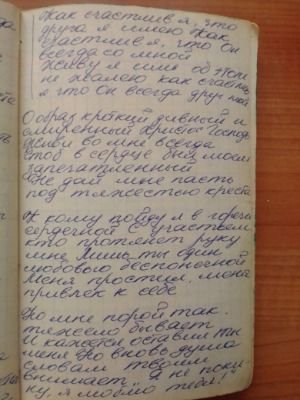 Как счастлив я, что
друга я имею Как
счастлив я, что он
всегда со мной
живу я им и об этом
не жалею как счастлив
я что он всегда друг мой
О образ кроткий дивный и
смиренный Христос Господь
живи во мне всегда
чтоб в сердце был моем
запечатленный
Не дай мне пасть
под тяжестью креста
К кому пойду я в горечи
сердечной С участьем
кто протянет руку
мне Лишь ты один
любовью бесконечной
Меня простил, меня
привлек к себе
Ко мне порой так
тяжело бывает
И кажется оставил ты
меня Но вновь душа
словам твоим
внимает "Я не поки-
ну, я люблю тебя!"